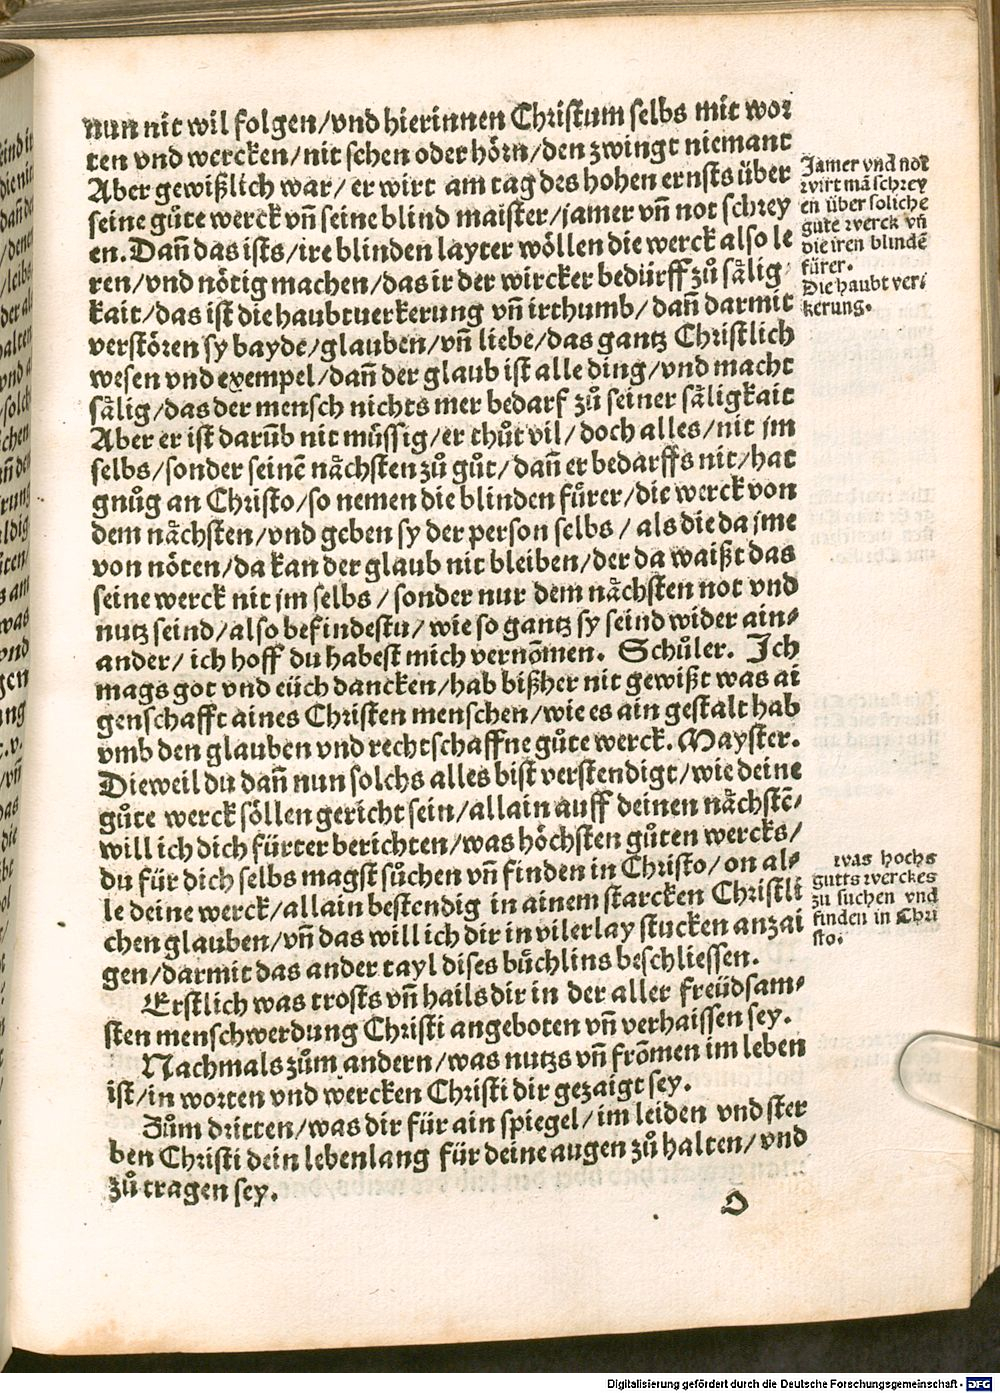 nun nit wil folgen/vnd hierinnen Christum selbs mit wor
ten vnd wercken/nit sehen oder hörn/den zwingt niemant
Aber gewißlich war/ er wirt am tag des hohen ernsts über
seine gůte werck vñ seine blind maister/jamer vñ not schrey
en. Dañ das ists/ire blinden layter wöllen die werck also le
ren/vnd nötig machen/das ir der wircker bedürff zů sälig⸗
kait/das ist die haubtuerkerung vñ irthumb/dañ darmit
verstören sy bayde/glauben/vñ liebe/das gantz Christlich
wesen vnd exempel/dañ der glaub ist alle ding/vnd macht
sälig/das der mensch nichts mer bedarf zů seiner säligkait
Aber er ist darũb nit müssig/er thůt vil/doch alles/nit jm
selbs/sonder seinẽ nächsten zů gůt/dañ er bedarffs nit/hat
gnůg an Christo/so nemen die blinden fürer/die werck von
dem nächsten/vnd geben sy der person selbs/ als die da jme
von nöten/da kan der glaub nit bleiben/der da waißt das
seine werck nit jm selbs/sonder nur dem nächsten not vnd
nutz seind/also befindestu/wie so gantz sy seind wider ain⸗
ander/ ich hoff du habest mich vernõmen. Schůler. Ich
mags got vnd eüch dancken/hab bißher nit gewißt was ai
genschafft aines Christen menschen/wie es ain gestalt hab
vmb den glauben vnd rechtschaffne gůte werck. Mayster.
Dieweil du dañ nun solchs alles bist verstendigt/wie deine
gůte werck söllen gericht sein/allain auff deinen nächstẽ/
will ich dich fürter berichten/was höchsten gůten wercks/
du für dich selbs magst sůchen vñ finden in Christo/on al⸗
le deine werck/allain bestendig in ainem starcken Christli
chen glauben/vñ das will ich dir in vilerlay stucken anzai
gen/darmit das ander tayl dises büchlins beschliessen.
Erstlich was trosts vñ hails dir in der aller freüdsam⸗
sten menschwerdung Christi angeboten vñ verhaissen sey.
Nachmals zům andern/was nutzs vñ frõmen im leben
ist/in worten vnd wercken Christi dir gezaigt sey.
Zům dritten/was dir für ain spiegel/im leiden vnd ster
ben Christi dein lebenlang für deine augen zů halten/vnd
zů tragen sey.
D
Jamer vnd not
wirt mã schrey
en über soliche
gute werck vñ
die iren blindẽ
fürer.
Die haubt ver⸗
kerung.
was hochs
gutts werckes
zu suchen vnd
finden in Chri
sto.
Digitalisierung gefördert durch die Deutsche Forschungsgemeinschaft - DFG